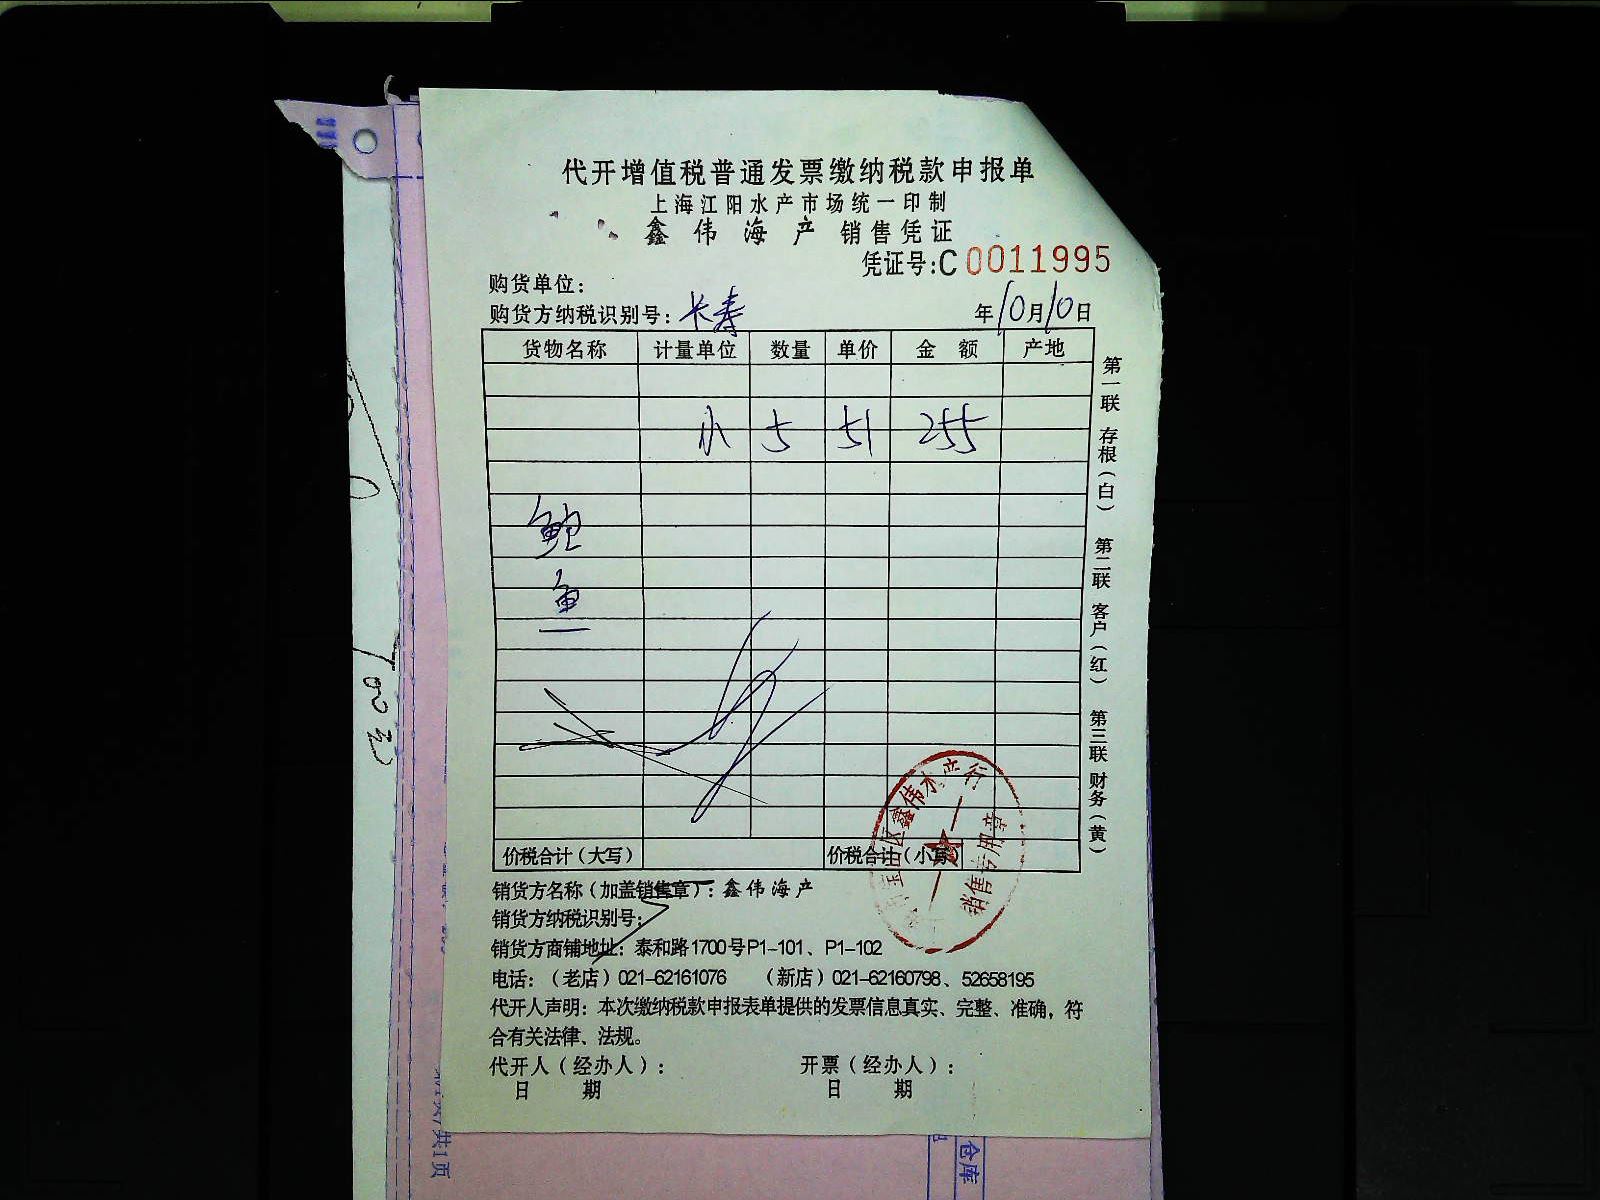 代开增值税普通发票缴纳税款申报单
上海江阳水产市场统一印制
鑫伟海产 销售凭证
凭证号:C 0011995
购货单位:
购货方纳税识别号: 长寿 年10月10日
货物名称 计量单位 数量 单价 金额 产地
小 5 51 255
鲍
鱼
价税合计(大写) 价税合计(小写)
销货方名称(加盖销售章): 鑫伟海产
销货方纳税识别号:
销货方商铺地址: 泰和路1700号P1-101、P1-102
电话:(老店)021-62161076 (新店)021-62160798、52658195
代开人声明: 本次缴纳税款申报表单提供的发票信息真实、完整、准确,符
合有关法律、法规。
代开人(经办人): 开票(经办人):
日期 日期
第一联 存根(白) 第二联 客户(红) 第三联 财务(黄)
宝山区鑫伟水产行
销售专用章
共1页
仓库